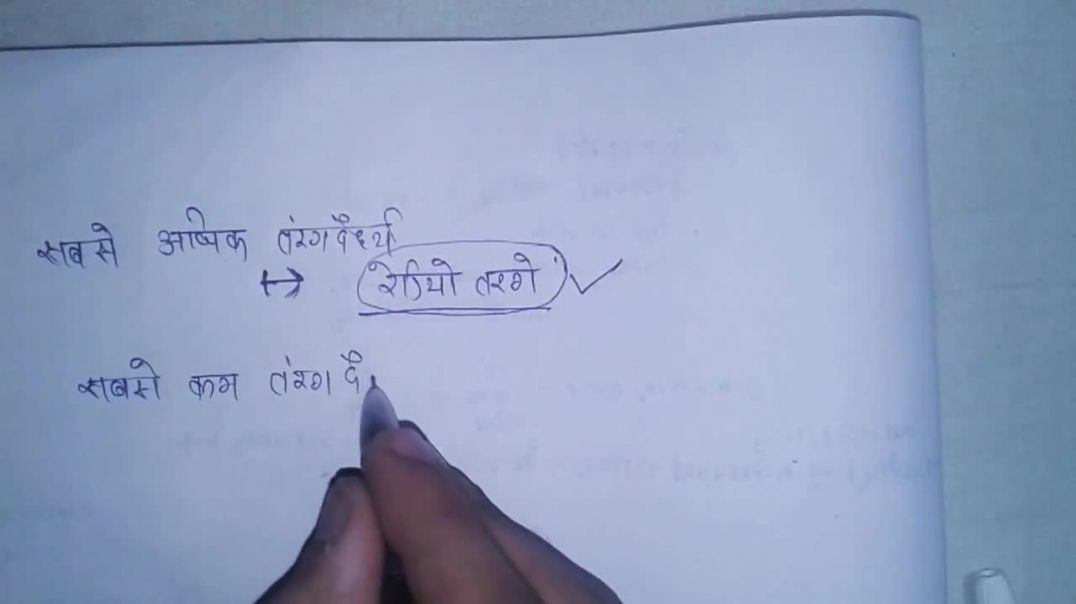 सबसे अधिक तंरगदैर्ध्य
रेडियो तरगे
सबसे कम तंरग दै